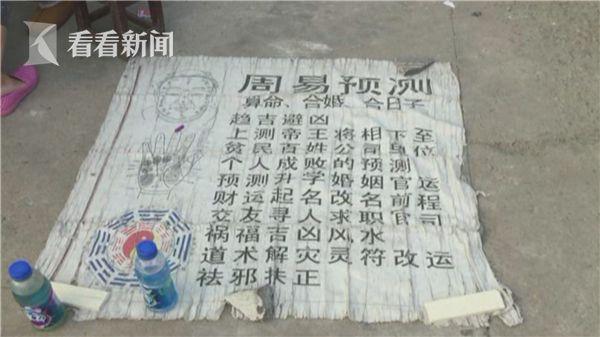 看看新闻
周易预测
算命、合婚、合日子
趋吉避凶
上测帝王将相下至
贫民百姓公司单位
个人成败的预测
预测升学婚姻官运
财运起名改名前程
交友寻人求职官司
祸福吉凶风水
道术解灾灵符改运
祛邪扶正